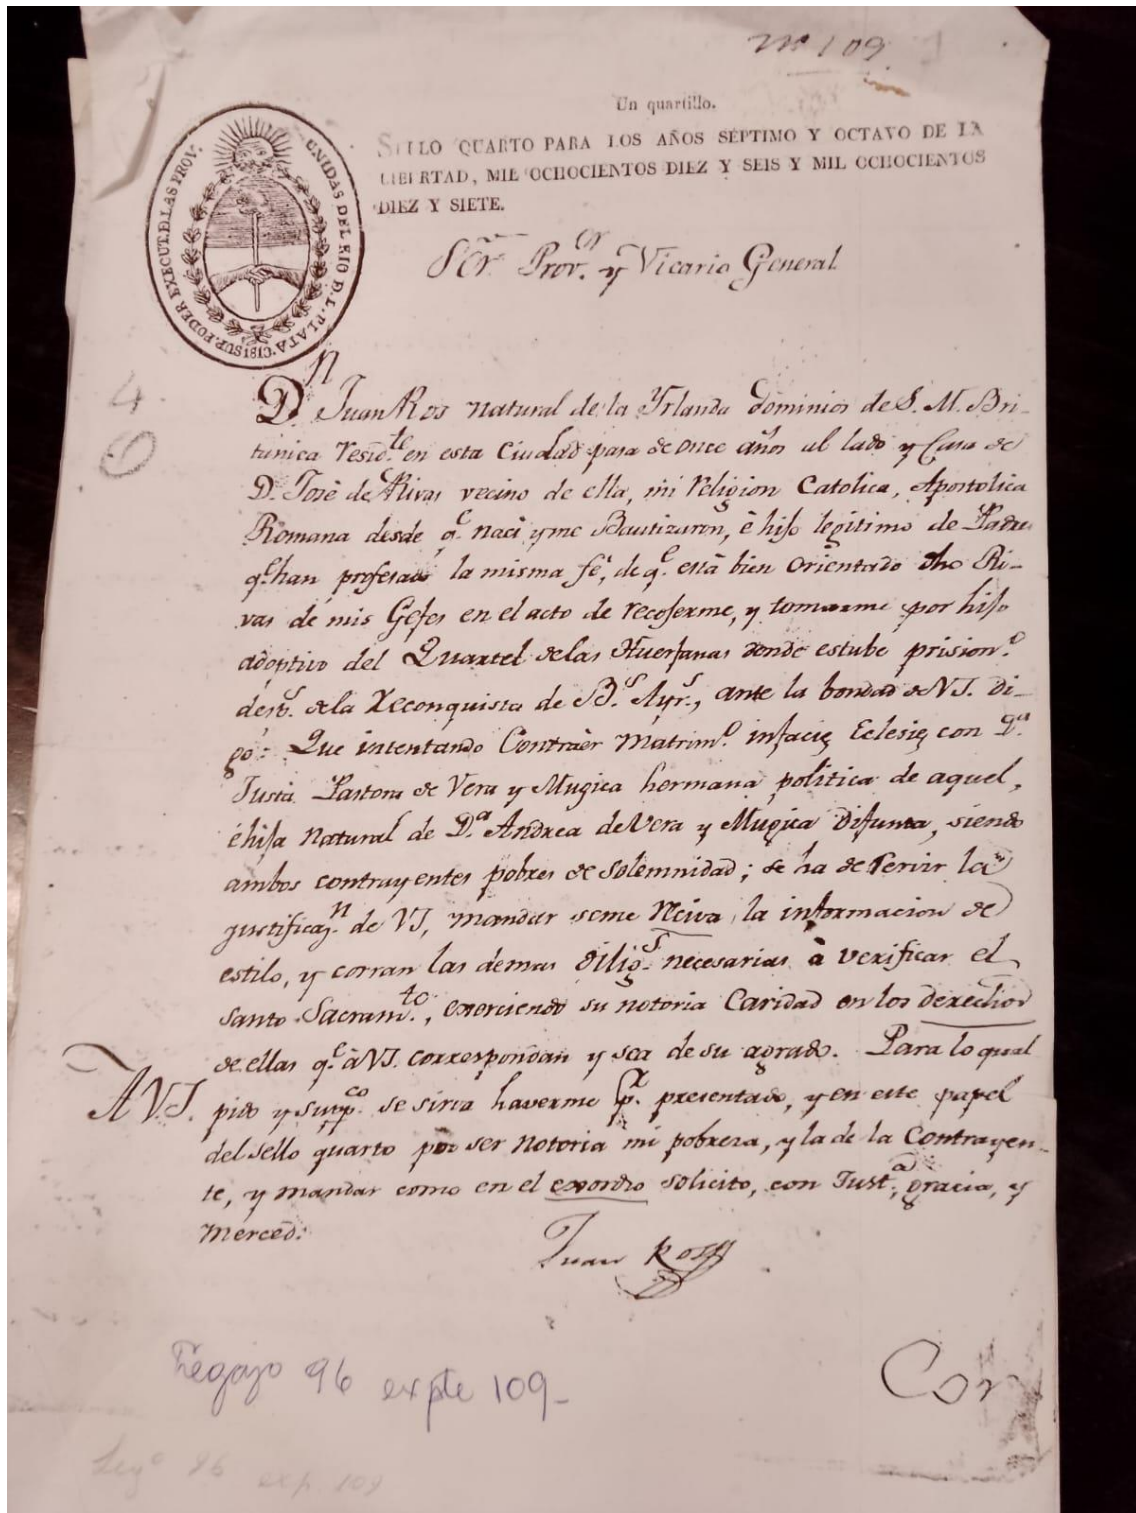 nº 109
Un quartillo.
SELLO QUARTO PARA LOS AÑOS SÉPTIMO Y OCTAVO DE LA
LIBERTAD, MIL OCHOCIENTOS DIEZ Y SEIS Y MIL OCHOCIENTOS
DIEZ Y SIETE.
SUP. PODER EXECUT. D. LAS PROV. UNIDAS DEL RIO D. L. PLATA
Sōr. Provor. y Vicario General
4
6
Dn. Juan Ros natural de la Yrlanda dominios de S. M. Bri-
tanica residte. en esta Ciudad pasa de once años al lado y Casa de
D. José de Rivas vecino de ella, mi religion Catolica, Apostolica
Romana desde qe. naci y me Bautizaron, è hijo legitimo de Padres
qe. han profesado la misma fé, de qe. està bien orientado dho Ri-
vas de mis Gefes en el acto de recojerme, y tomarme por hijo
adoptivo del Quartel de las Huerfanas donde estube prisiono.
desps. de la Reconquista de Bs. Ayrs., ante la bondad de VS. di-
go: Que intentando Contraèr Matrimo. infacie Eclesie con Da.
Justa Pastora de Vera y Mugica hermana politica de aquel,
è hija natural de Da. Andrea de Vera y Mugica difunta, siendo
ambos contrayentes pobres de solemnidad; se ha de servir la
justificazn. de VS, mandar seme reciva la informacion de
estilo, y corran las demas diligs. necesarias à verificar el
santo Sacramto., exerciendo su notoria Caridad en los derechos
de ellas qe. à VS. correspondan y sea de su agrado. Para lo qual
A VS. pido y suppco. se sirva haverme pr. presentado, y en este papel
del sello quarto por ser notoria mi pobreza, y la de la Contrayen-
te, y mandar como en el exordio solicito, con Justa., gracia, y
merced.
Juan Ross
Legajo 96 expte 109-
Cor
Legº 96 exp. 109